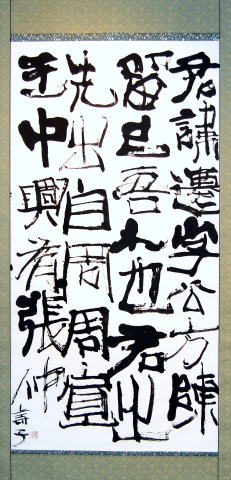 君諱遷字公方陳
留己吾人也君之
先出自周周宣
王中興有張仲